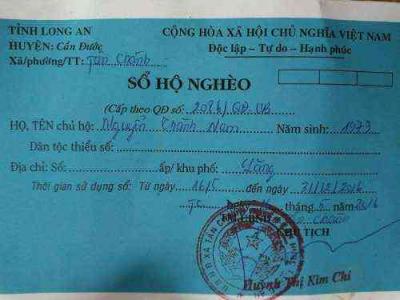 TỈNH LONG AN
CỘNG HÒA XÃ HỘI CHỦ NGHĨA VIỆT NAM
HUYỆN: Cần Đước
Độc lập - Tự do - Hạnh phúc
Xã/phường/TT: Tân Chánh
SỔ HỘ NGHÈO
(Cấp theo QĐ số: 2026/QĐ.UB
HỌ, TÊN chủ hộ: Nguyễn Chánh Nam Năm sinh: 1973
Dân tộc thiểu số:
Địa chỉ: Số: ấp/ khu phố: Lăng
Thời gian sử dụng sổ: Từ ngày 16/5 đến ngày 31/12/2016
T.C tháng 5 năm 2016
TM.UBND
CHỦ TỊCH
Huỳnh Thị Kim Chi